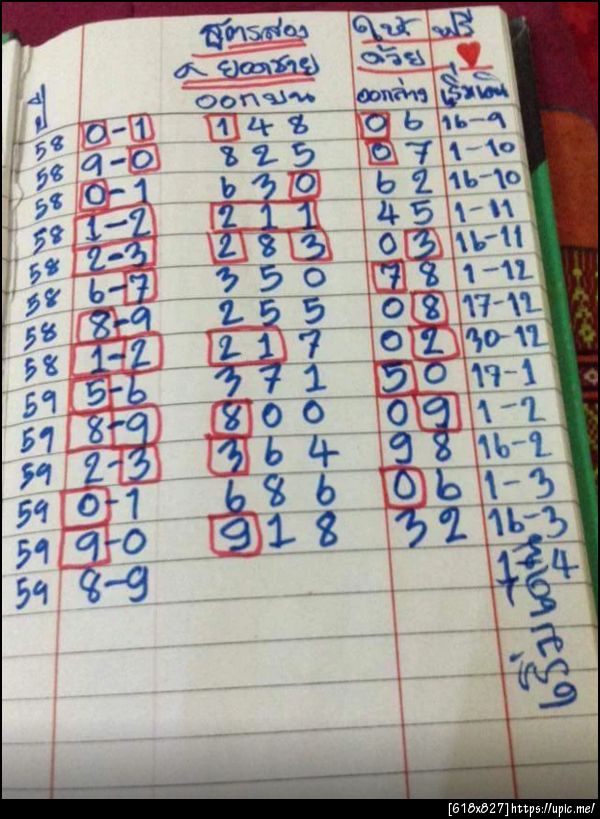 สูตรสอง ให้ ฟรี
ด้วย
ปี ออกบน ออกล่าง เริ่มเดิน
58 0-1 148 06 16-9
58 9-0 825 07 1-10
58 0-1 630 62 16-10
58 1-2 211 45 1-11
58 2-3 283 03 16-11
58 6-7 350 78 1-12
58 8-9 255 08 17-12
58 1-2 217 02 30-12
59 5-6 371 50 17-1
59 8-9 800 09 1-2
59 2-3 364 98 16-2
59 0-1 686 06 1-3
59 9-0 918 32 16-3
59 8-9 1-4
[618x827]https://upic.me/